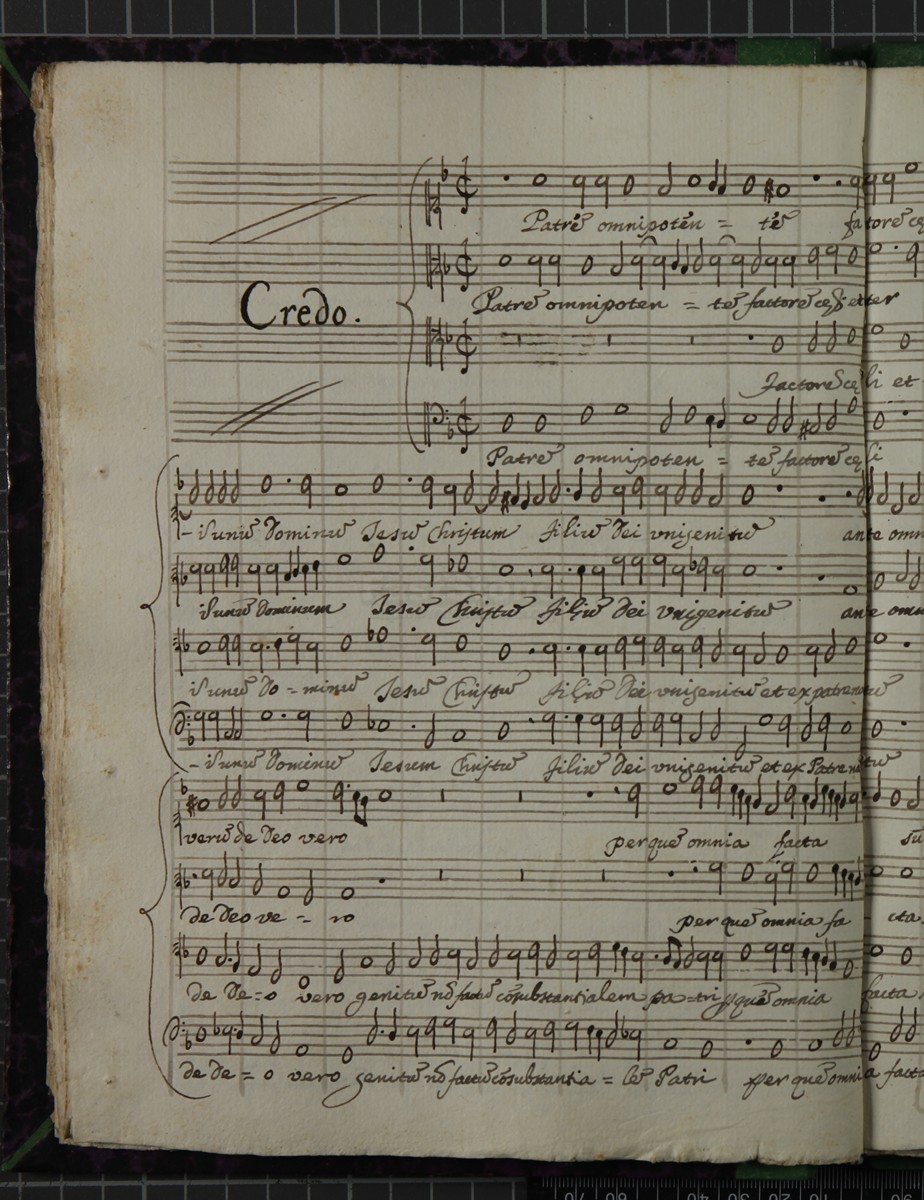 Patrē omnipotēn = tē factorē cę
Credo.
Patrē omnipoten = tē factorē cęli et ter
factorē cęli et
Patrē omnipoten = tē factorē cęli
- i Iunū Dominū Iesū Christum filiū Dei vnigenitū ante omn
Iunū Dominum Iesū Christū filiū Dei vnigenitū ante omn
Iunū Do = minū Iesū Christū filiū Dei vnigenitū et ex patre natū
- i Iunū Dominū Iesum Christū filiū Dei vnigenitū et ex Patre natū
verū de Deo vero per quē omnia facta su
de Deo ve = ro per quē omnia fa - cta
de De = o vero genitū nō factū cōsubstantialem pa = tri quē omnia facta
de De = o vero genitū nō factū cōsubstantia = lē Patri per quē omnia facta